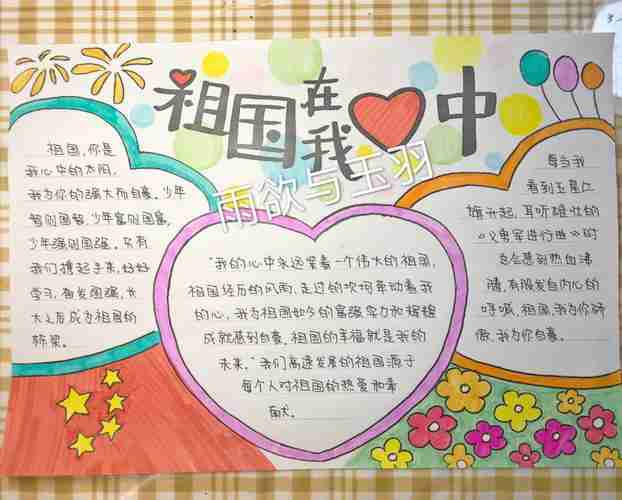 祖国在我中
雨欲与玉羽
祖国,你是
我心中的太阳,
我为你的强大而自豪。少年
智则国智,少年富则国富,
少年强则国强。只有
我们携起手来,好好
学习,奋发图强,长
大之后成为祖国的
栋梁。
"我的心中永远装着一个伟大的祖国,
祖国经历的风雨,走过的坎坷牵动着我
的心,我为祖国如今的富强实力和辉煌
成就感到自豪,祖国的幸福就是我的
未来。"我们高速发展的祖国源于
每个人对祖国的热爱和奉
献
每当我
看到五星红
旗升起,耳听雄壮的
《义勇军进行曲》时
总会感到热血沸
腾,有股发自内心的
呼喊,祖国,我为你骄
傲,我为你自豪。